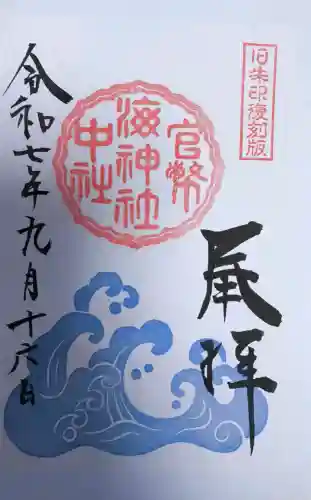 旧朱印復刻版
奉拝
官幣
海神社
中社
令和七年九月十六日